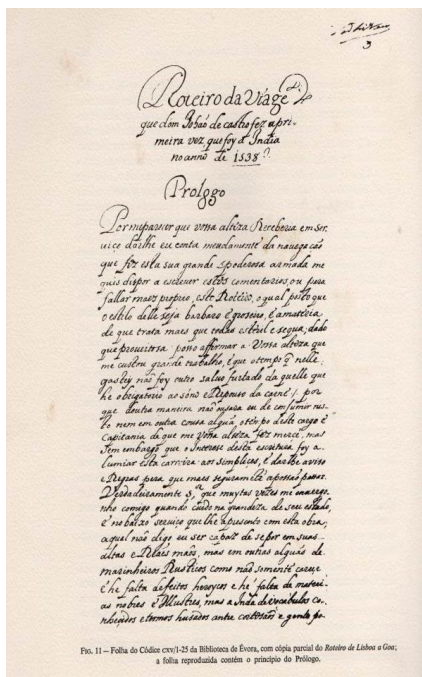 3
Roteiro da Viagẽ
que dom Johaõ de castro fez a pri-
meira vez que foy a India
no anno de 1538
Prologo
Por me parecer que vossa alteza Receberia em ser
viço darlhe eu conta meudamente da navegação
que fez esta sua grande e poderosa armada me
quis dispor a escrever estes comentarios, ou para
fallar mais proprio, este Roteiro, o qual posto que
o estilo delle seja barbaro e groseiro, e a materia
de que trata mais que todas esteril e segua; dado
que proveitosa posso affirmar a Vossa alteza que
me custou grande trabalho, e que o tempo q̃ nelle
gastey não foy outro salvo furtado da quelle que
he obrigatorio ao sono e Repouso da carne, por
que doutra maneira não ousara eu de consumir nes
to nem em outra cousa algũa, o tempo deste cargo e
Capitania da que me Vossa alteza fez merce, mas
sem embargo que o Interese desta escritura foy a
lumiar esta carreira aos simplices, e darlhe aviso
e Regras pera que mais seguramẽte a possaõ passar.
Verdadeiramente Sʳ que muytas vezes me envergo
nho comigo quando cuido na grandeza de seu estado,
e no baixo serviço que lhe apresento com esta obra,
a qual não digo eu ser capaz de se por em suas
altas e Reaes mãos, mas em outras algũas de
marinheiros Rusticos como não somente careçe
e he falta de feitos heroycos e he falta de materi
as nobres e Illustres, mas a Inda de vocabulos co-
nheçidos e termos husados antre cortesãos e gente po-
FIG. 11 — Folha do Códice CXV/1-25 da Biblioteca de Évora, com cópia parcial do Roteiro de Lisboa a Goa;
a folha reproduzida contém o princípio do Prólogo.